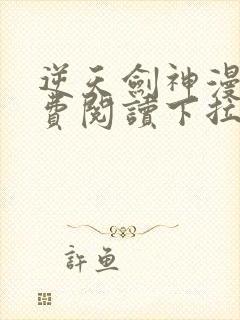 逆天劍神漫
費閱讀下拉
許魚